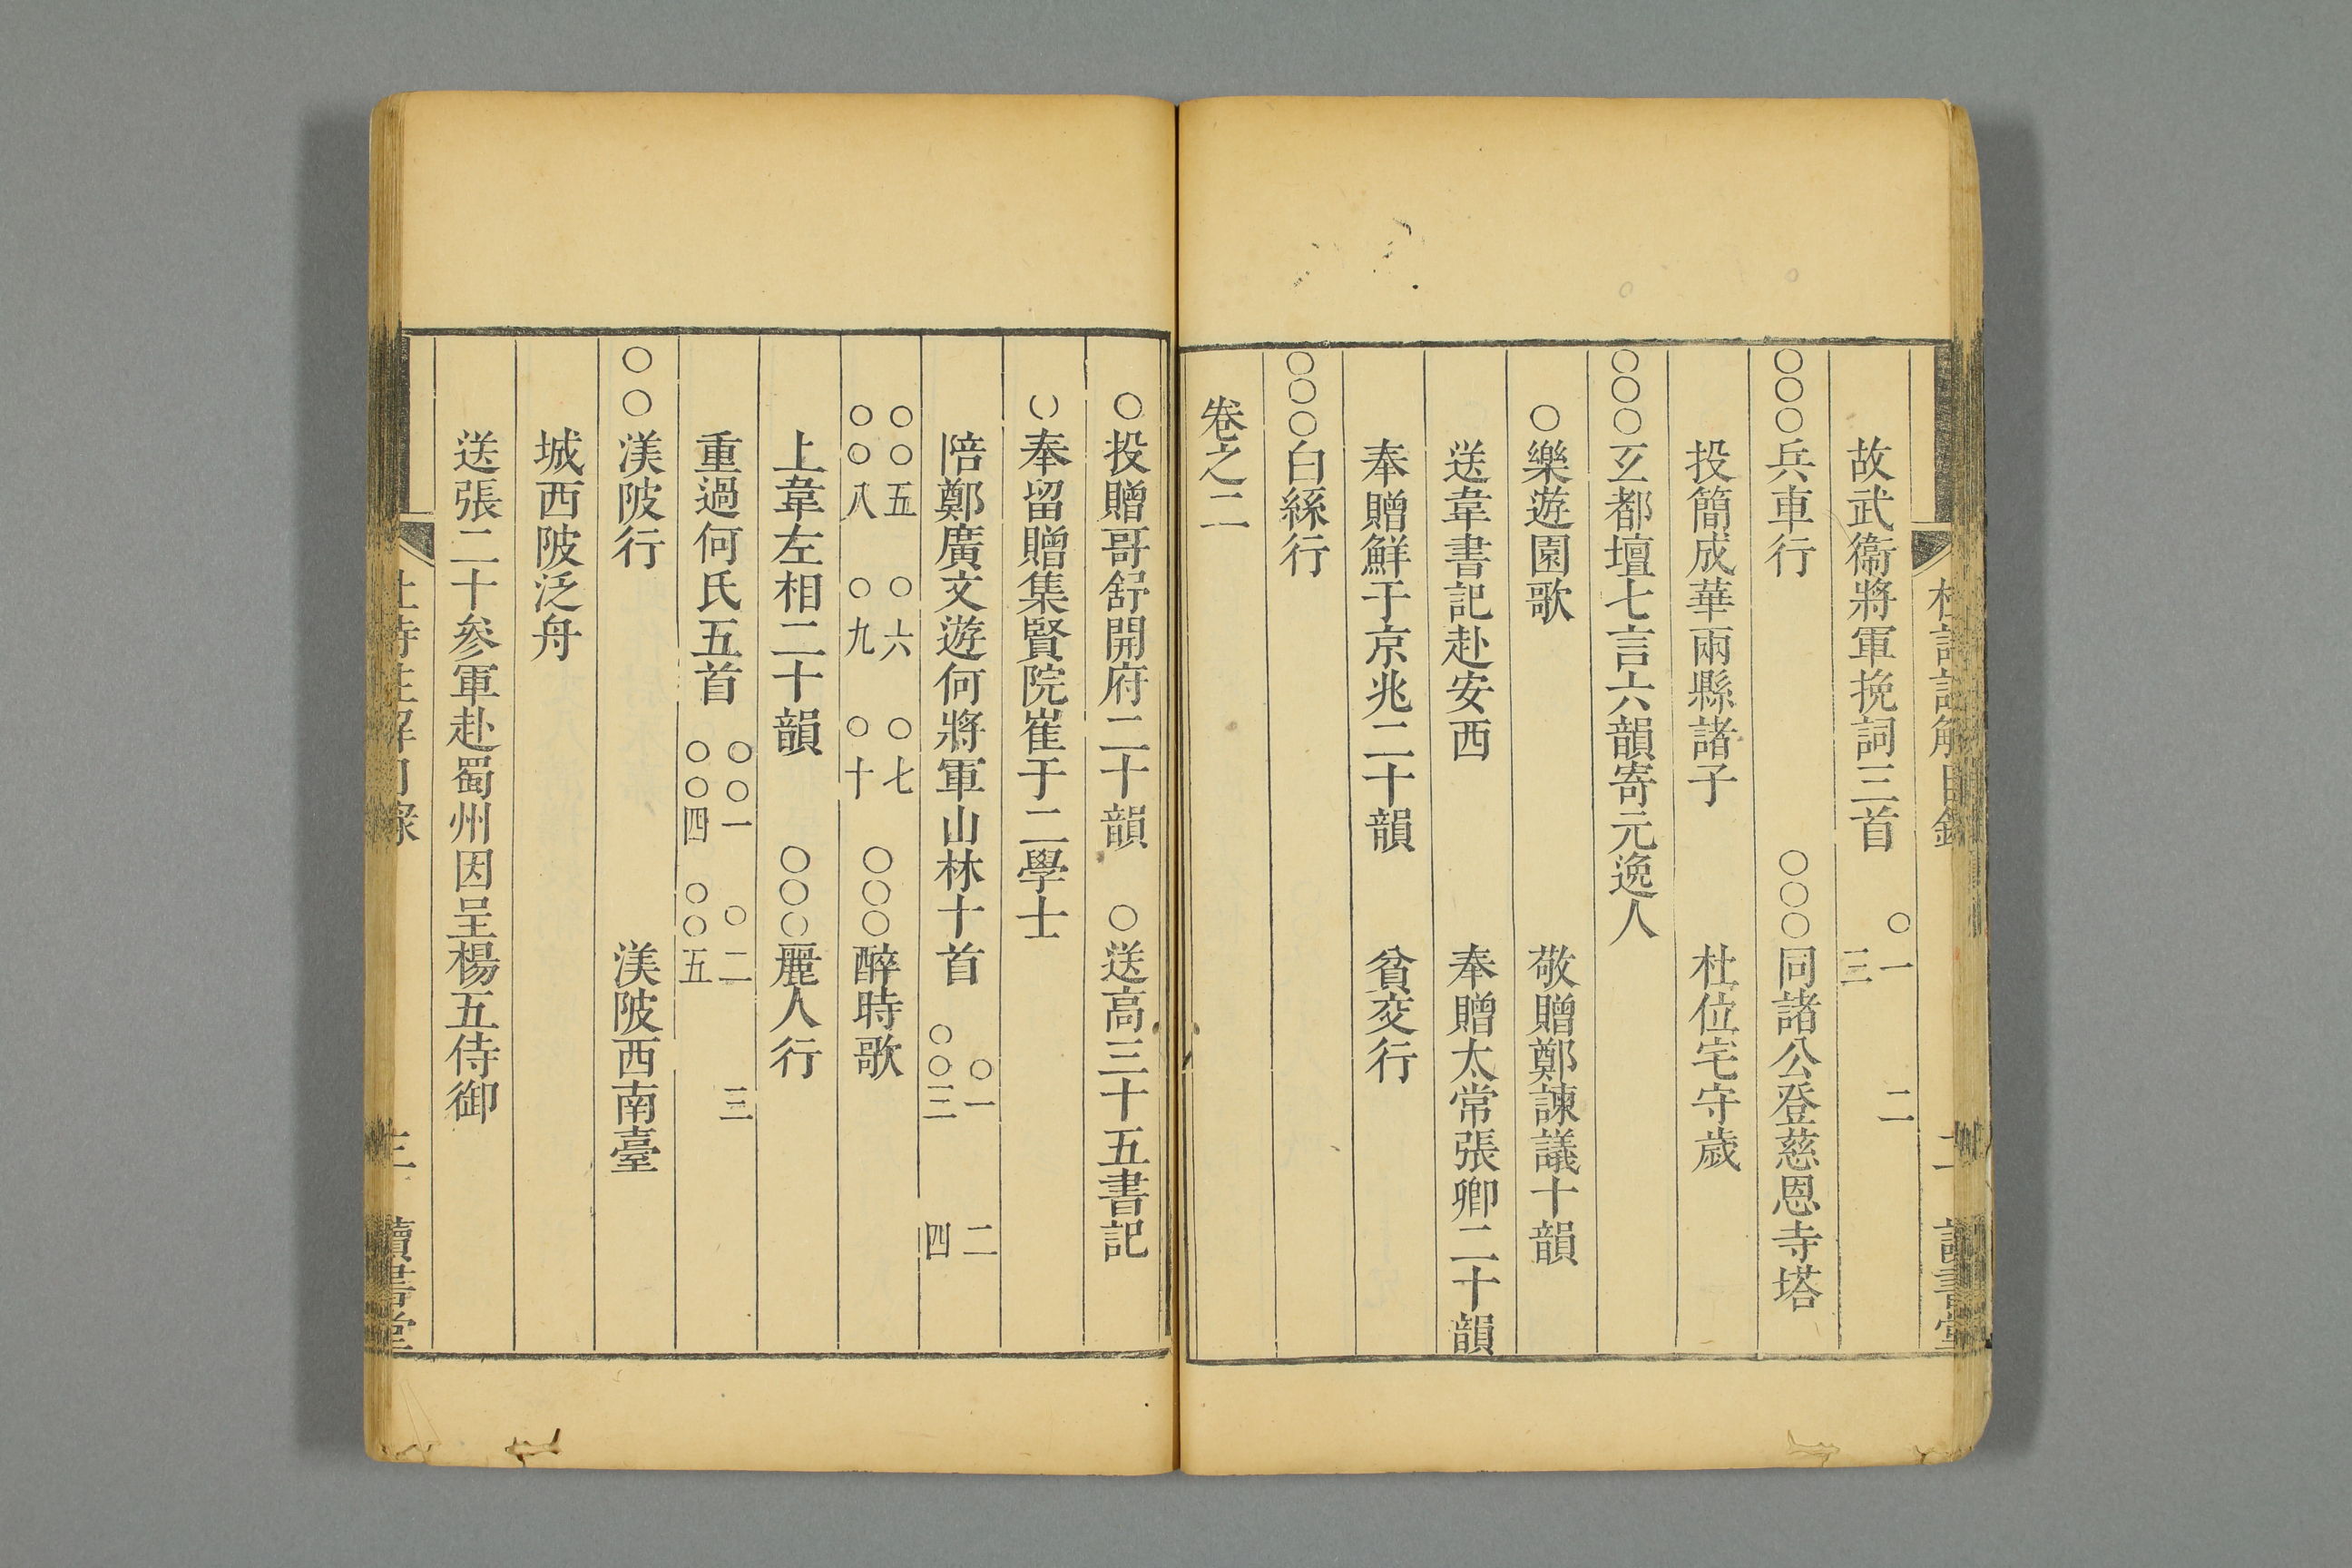 杜詩註解目錄 二 讀書堂
故武衞將軍挽詞三首 ○一 二 三
○○○兵車行 ○○○同諸公登慈恩寺塔
投簡成華兩縣諸子 杜位宅守歲
○○○玄都壇七言六韻寄元逸人
○樂遊園歌 敬贈鄭諫議十韻
送韋書記赴安西 奉贈太常張卿二十韻
奉贈鮮于京兆二十韻 貧交行
○○○白絲行
卷之二
○投贈哥舒開府二十韻 ○送高三十五書記
○奉留贈集賢院崔于二學士
陪鄭廣文遊何將軍山林十首 ○一 二 ○○三 四
○○五 ○六 ○七 ○○八 ○九 ○十 ○○○醉時歌
上韋左相二十韻 ○○○麗人行
重過何氏五首 ○○一 ○二 三 ○○四 ○○五
○○渼陂行 渼陂西南臺
城西陂泛舟
送張二十參軍赴蜀州因呈楊五侍御
杜詩註解目錄 三 讀書堂